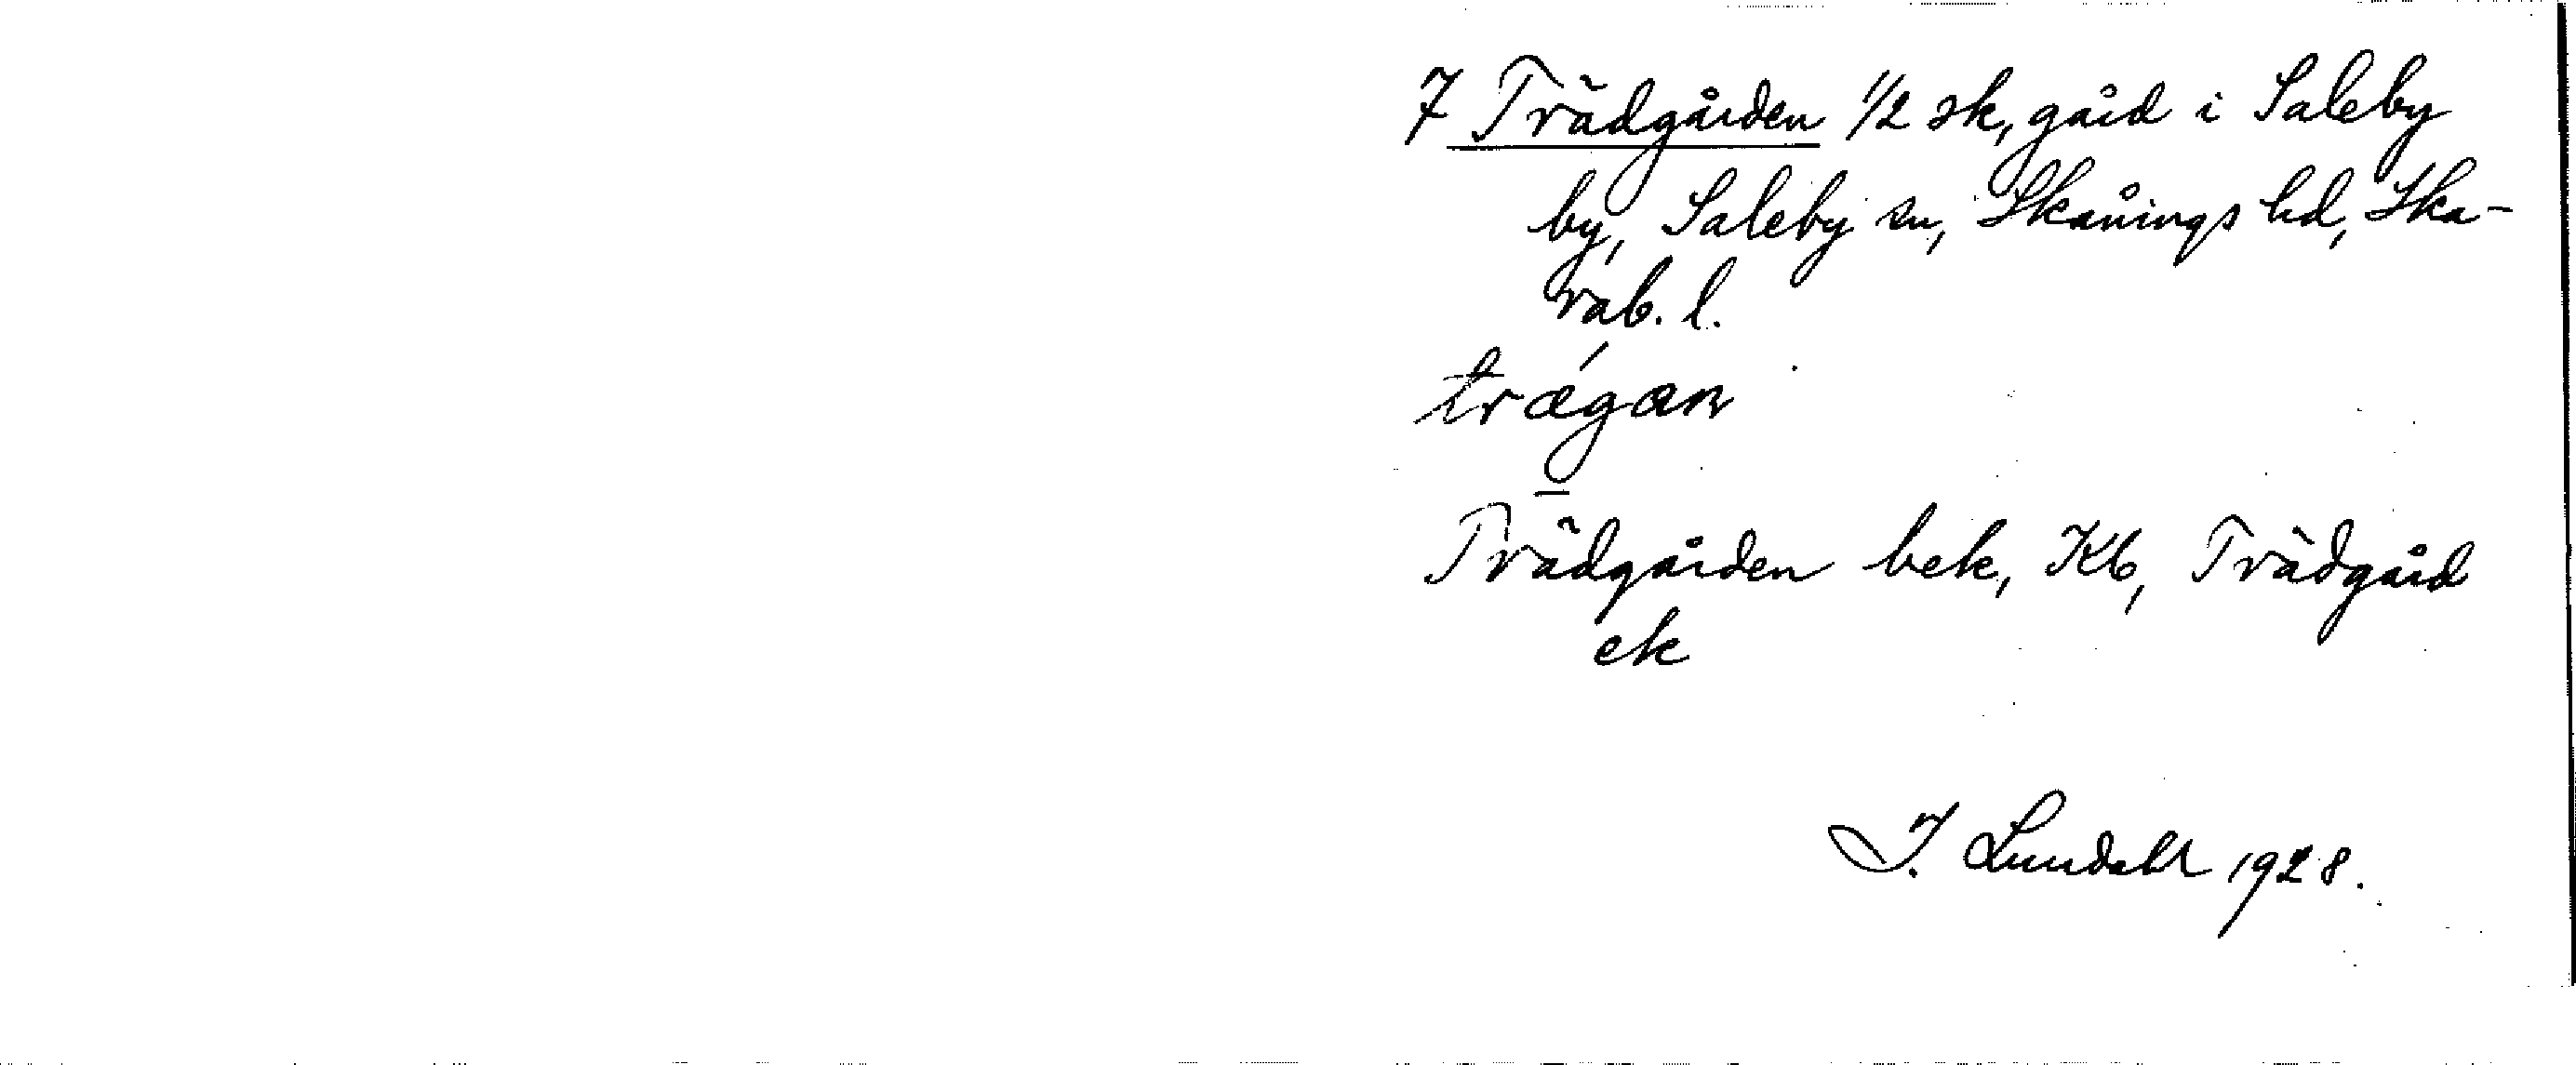 7 Trädgården 1/2 sk, gård i Saleby
by, Saleby sn, Skånings hd, Ska-
rab. l.
trǽgan
Trädgården bek, Kb, Trädgård
ek
I. Lundahl 1928.